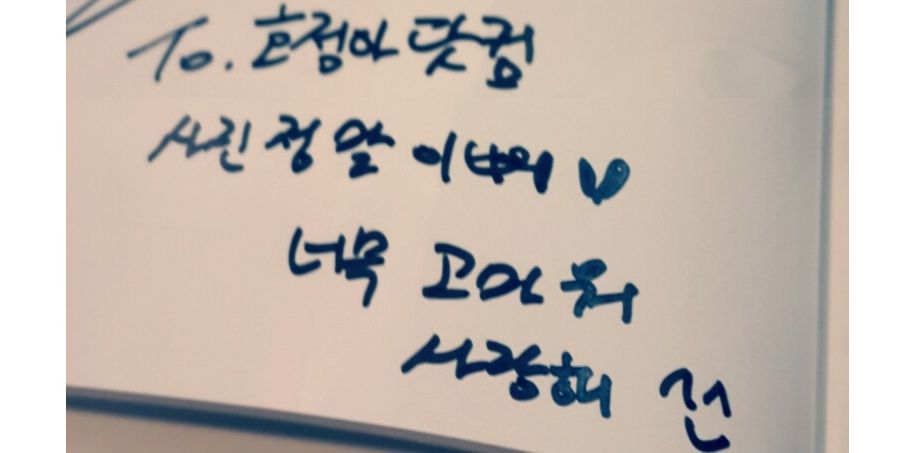 To. 효정아 닷컴
사진 정말 이뻐
너무 고마워
사랑해